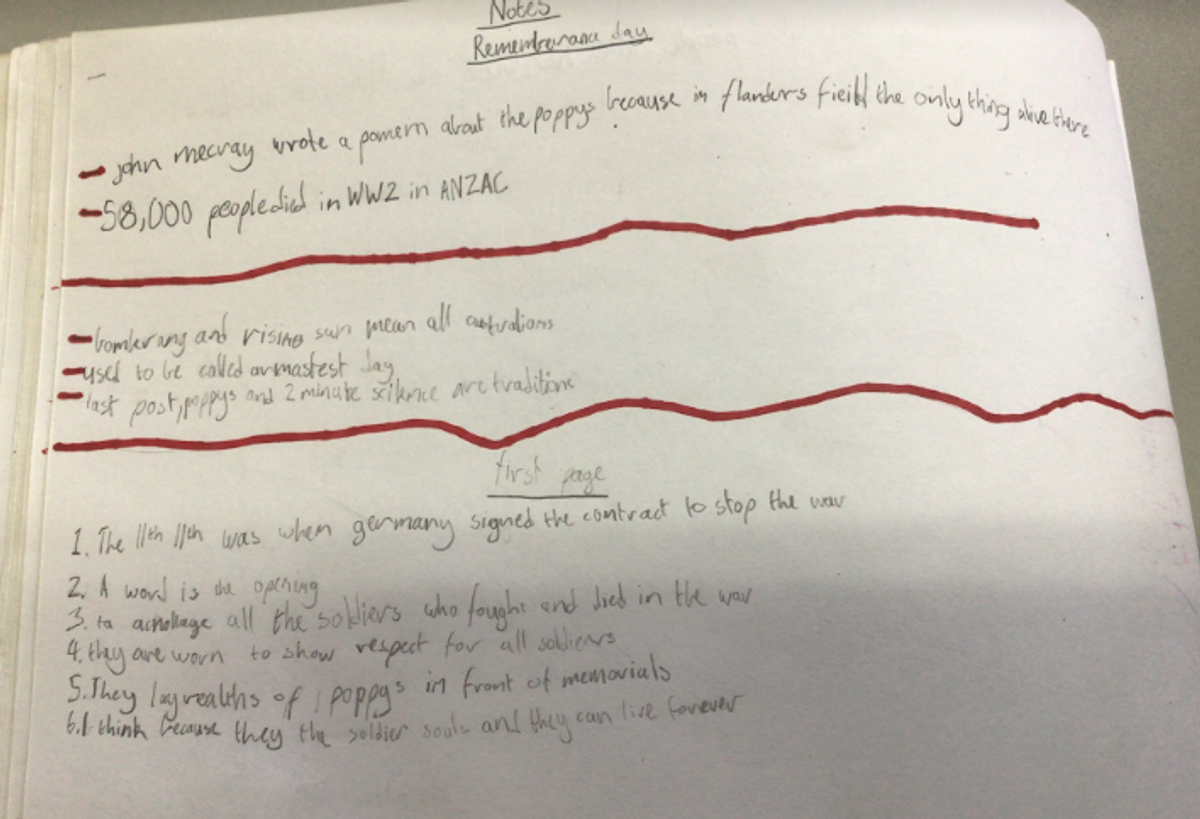 Notes
Rememberance day
- john mccray wrote a pomem about the poppys because in flanders fieild the only thing alive there
- 58,000 people died in WW2 in ANZAC
- bomberang and rising sun mean all australians
- used to be called armastest day
- last post, poppys and 2 minute scilence are traditions
first page
1. The 11th 11th was when germany signed the contract to stop the war
2. A word is the opening
3. to acnollage all the soldiers who fought and died in the war
4. they are worn to show respect for all soldiers
5. They lay realths of poppys in front of memorials
6. I think because they the soldier souls and they can live forever